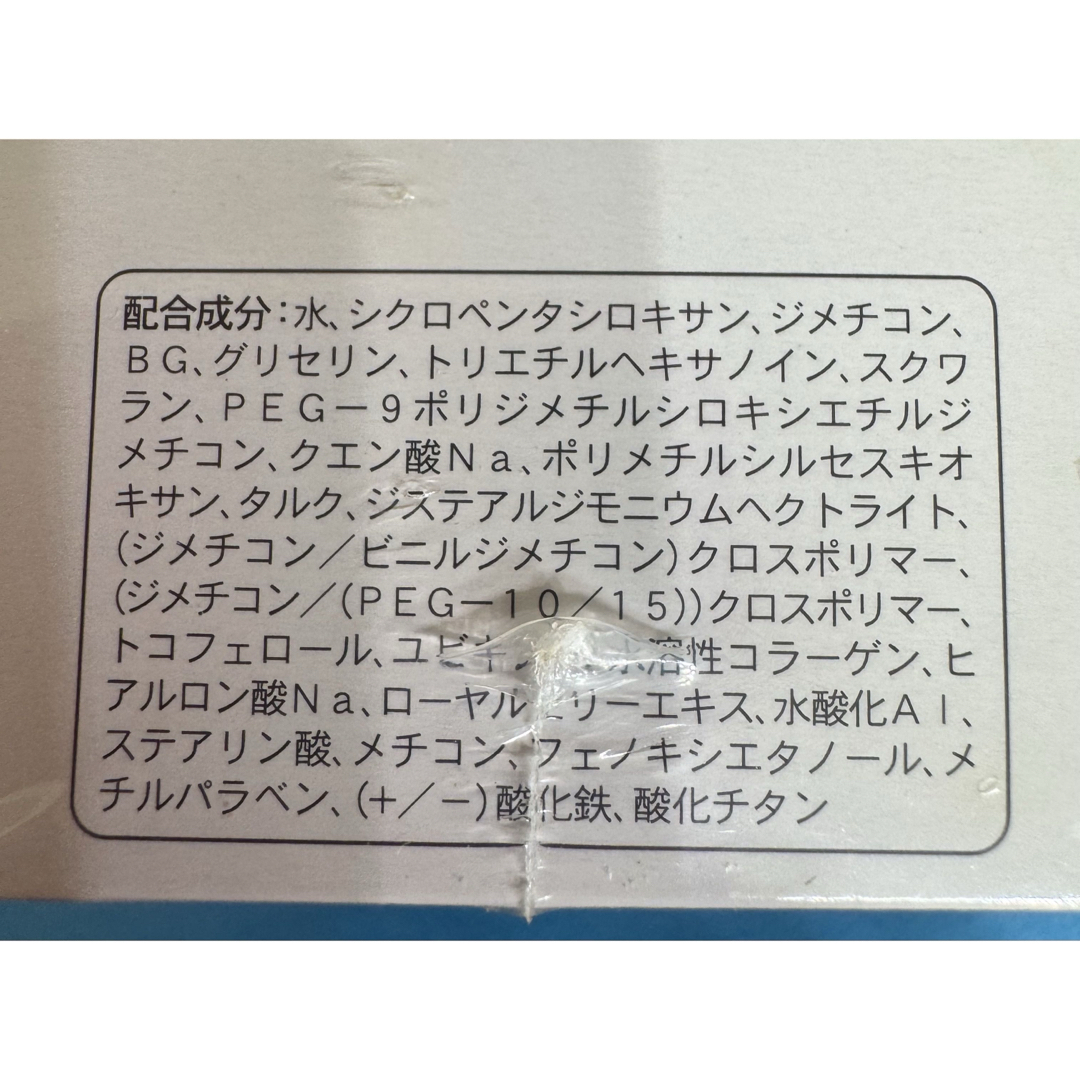 配合成分：水、シクロペンタシロキサン、ジメチコン、
ＢＧ、グリセリン、トリエチルヘキサノイン、スクワ
ラン、ＰＥＧ－９ポリジメチルシロキシエチルジ
メチコン、クエン酸Ｎａ、ポリメチルシルセスキオ
キサン、タルク、ジステアルジモニウムヘクトライト、
（ジメチコン／ビニルジメチコン）クロスポリマー、
（ジメチコン／（ＰＥＧ－１０／１５））クロスポリマー、
トコフェロール、水溶性コラーゲン、ヒ
アルロン酸Ｎａ、ローヤルゼリーエキス、水酸化Ａｌ、
ステアリン酸、メチコン、フェノキシエタノール、メ
チルパラベン、（＋／－）酸化鉄、酸化チタン